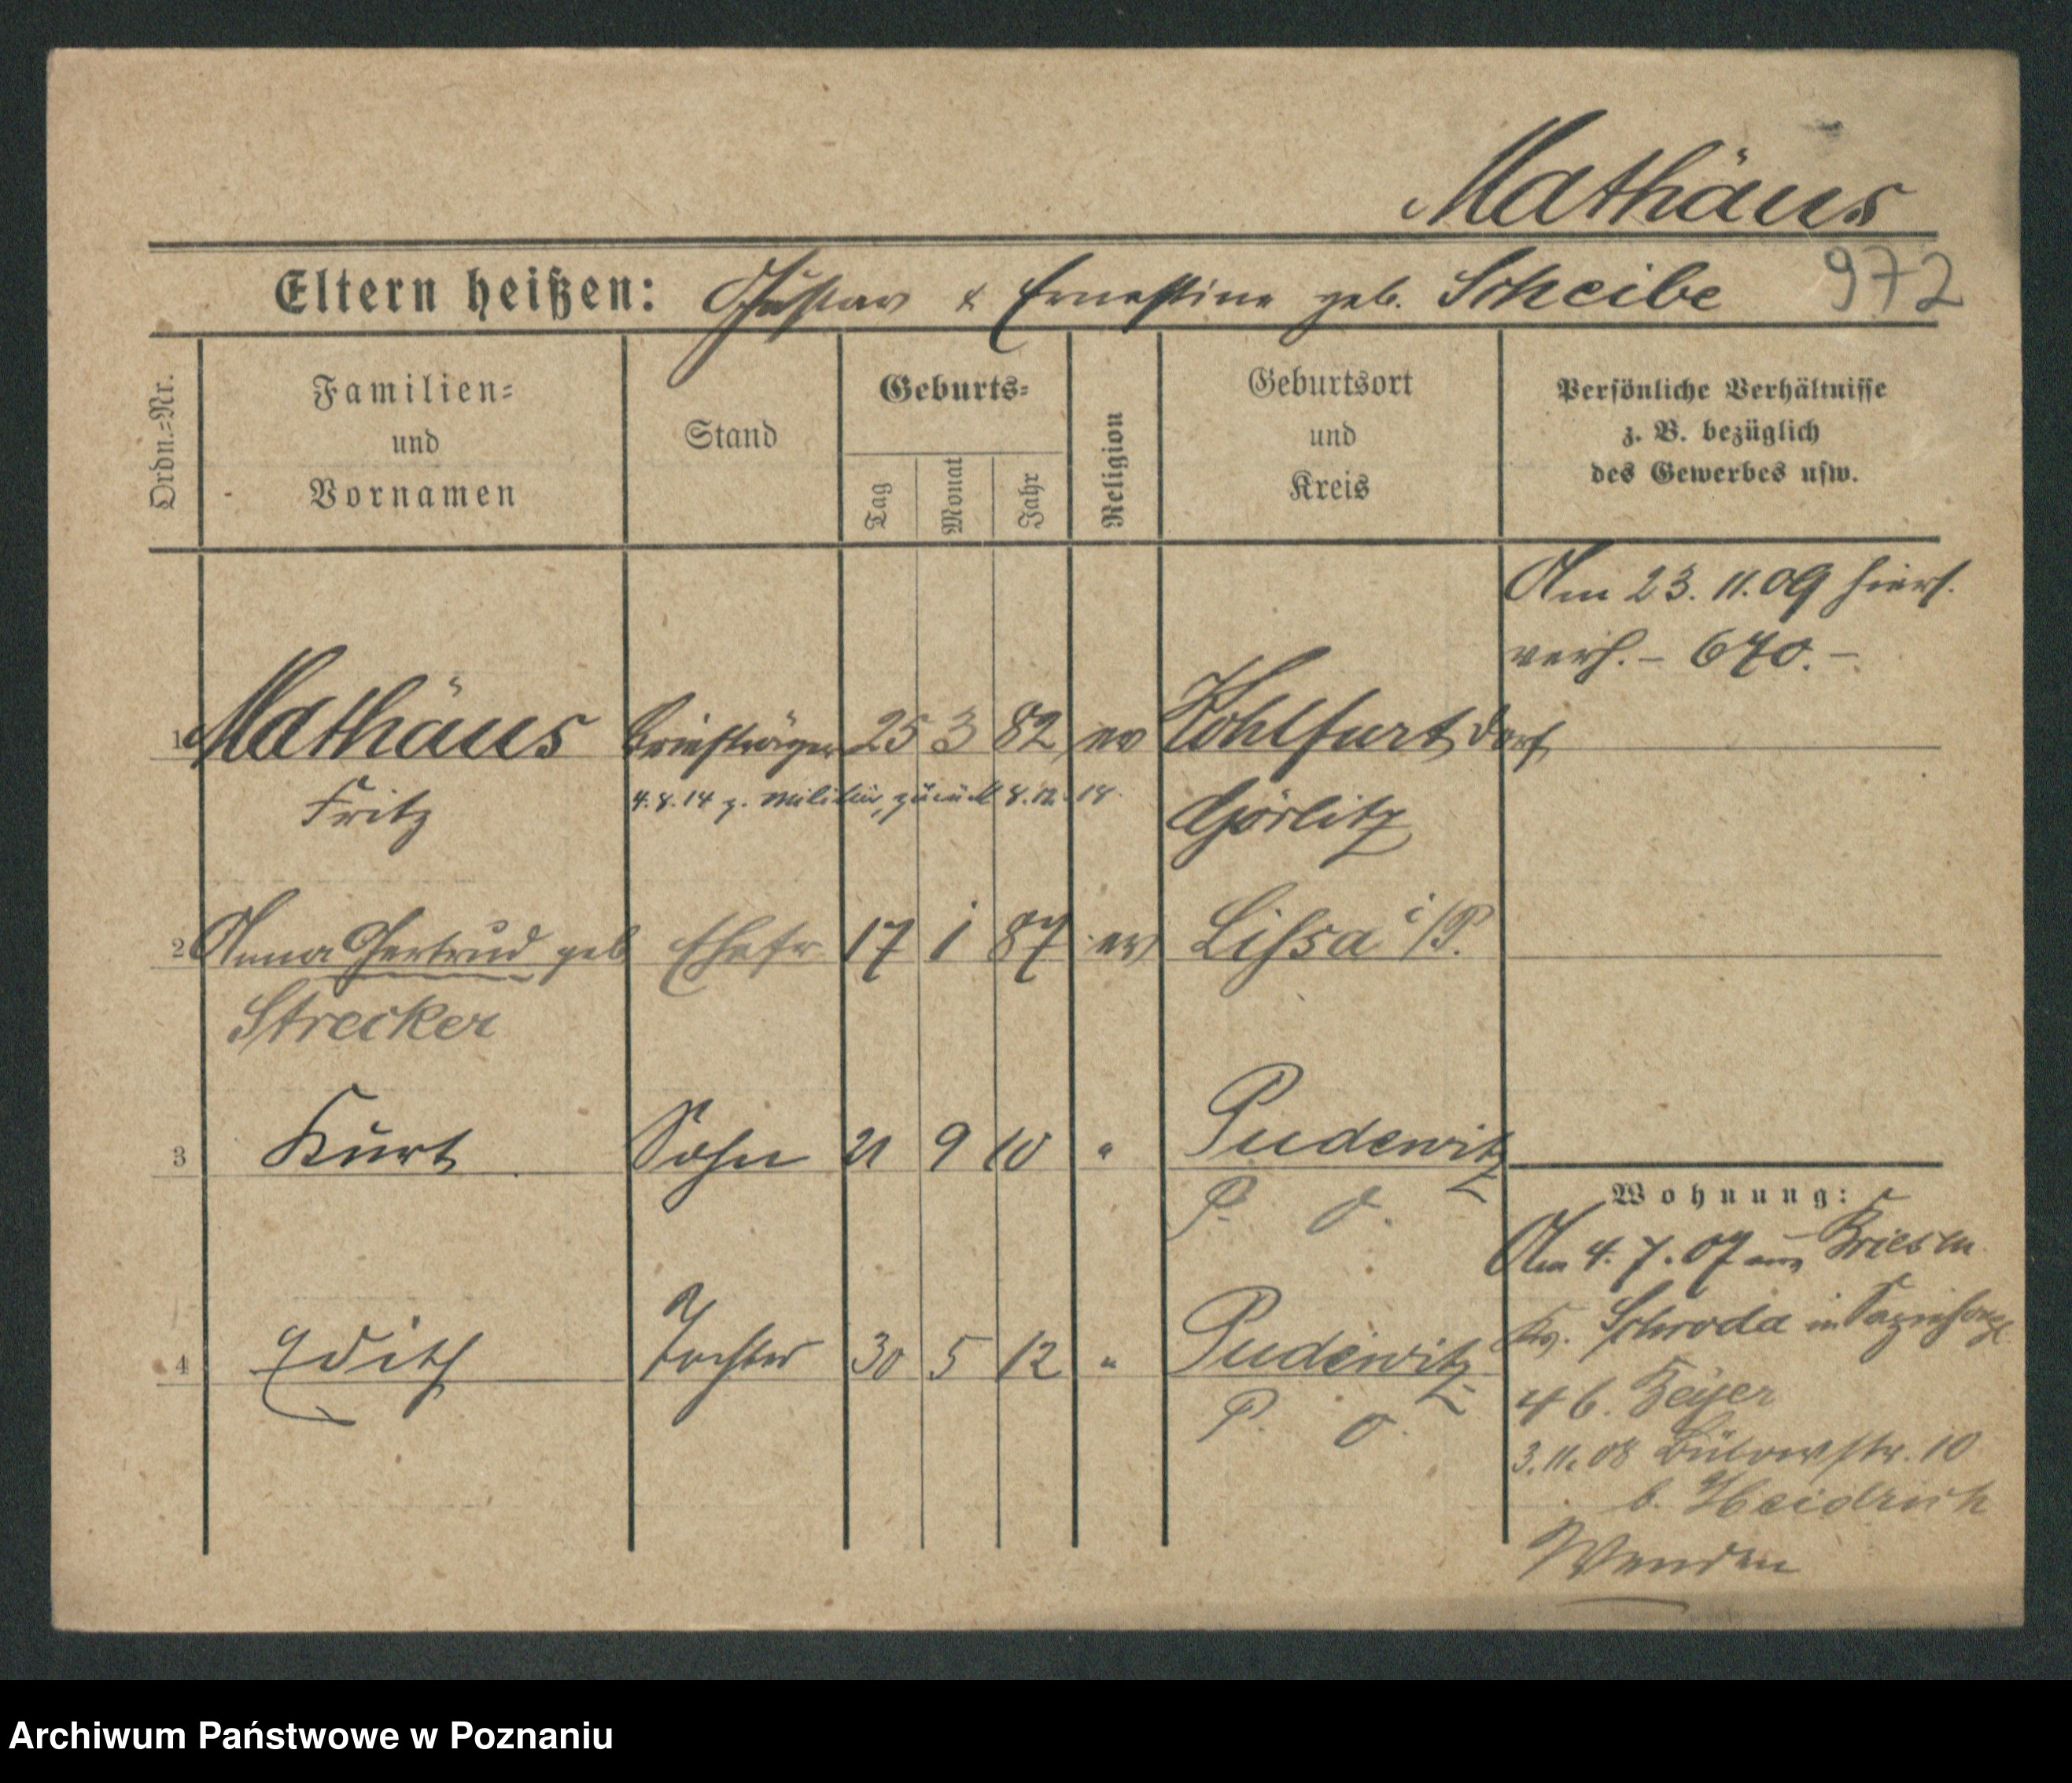 Mathäus
Eltern heißen: Gustav & Ernestine geb. Scheibe 972
Ordn.=Nr.
Familien=
und
Vornamen
Stand
Geburts=
Tag
Monat
Jahr
Religion
Geburtsort
und
Kreis
Persönliche Verhältnisse
z. B. bezüglich
des Gewerbes usw.
Am 23. 11. 09 hiers.
verh. – 670. –
1 Mathäus Briefträger 25 3 82 ev Kohlfurt Dorf
Fritz 4. 8. 14 z. Militär, zurück 8. 12. 18. Görlitz
2 Anna Gertrud geb Ehefr. 17 1 87 ev Lissa i/P.
Strecker
3 Kurt Sohn 21 9 10 " Pudewitz
P. O.
4 Edith Tochter 30 5 12 " Pudewitz
P. O.
Wohnung:
Am 4. 7. 07 aus
Kr. Schroda in
46. Beyer
3. 11. 08 Bülowstr. 10
b. Heidrich
Wenden
Archiwum Państwowe w Poznaniu